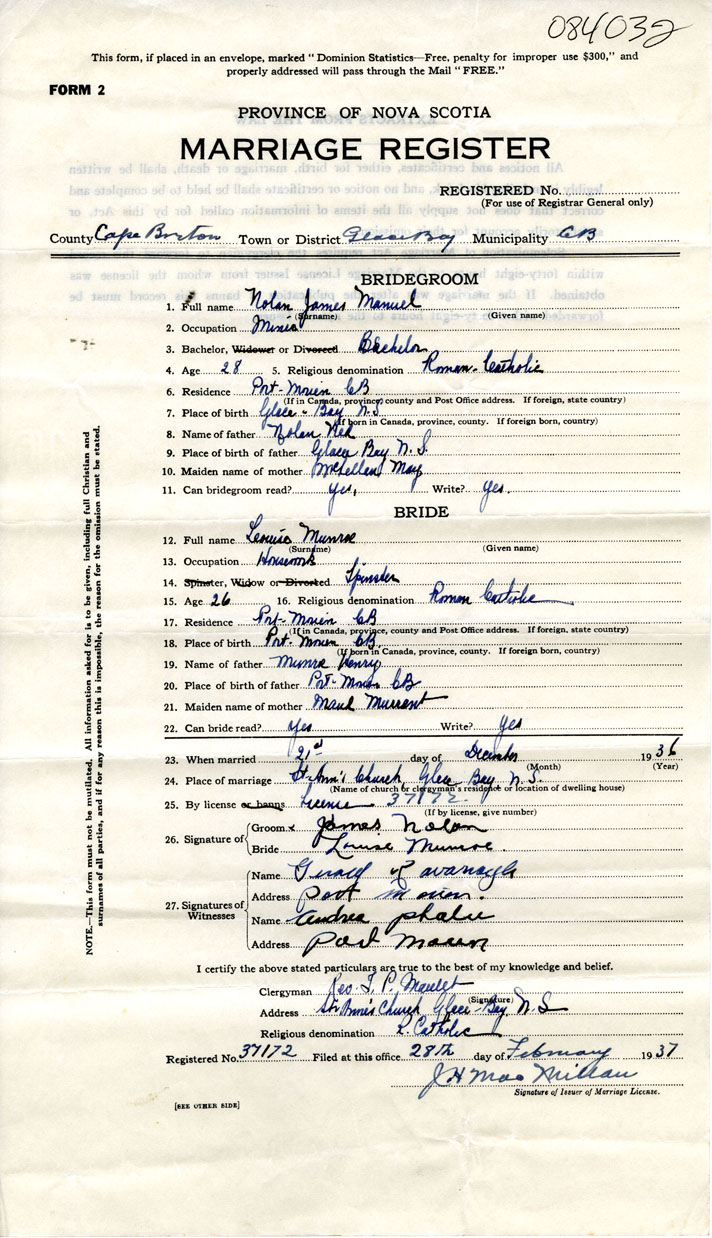 084032
This form, if placed in an envelope, marked "Dominion Statistics—Free, penalty for improper use $300," and
properly addressed will pass through the Mail "FREE."
FORM 2
PROVINCE OF NOVA SCOTIA
MARRIAGE REGISTER
REGISTERED No.
(For use of Registrar General only)
County Cape Breton Town or District Glace Bay Municipality CB
BRIDEGROOM
1. Full name Nolan James Manuel
(Surname) (Given name)
2. Occupation Miner
3. Bachelor, Widower or Divorced Bachelor
4. Age 28 5. Religious denomination Roman-Catholic
6. Residence Port-Morien CB
(If in Canada, province, county and Post Office address. If foreign, state country)
7. Place of birth Glace-Bay N.S
(If born in Canada, province, county. If foreign born, country)
8. Name of father Nolan
9. Place of birth of father Glace Bay N.S.
10. Maiden name of mother McLellan May
11. Can bridegroom read? yes, Write? yes.
BRIDE
12. Full name Louise Munroe
(Surname) (Given name)
13. Occupation Housework
14. Spinster, Widow or Divorced Spinster
15. Age 26 16. Religious denomination Roman Catholic
17. Residence Port-Morien CB
(If in Canada, province, county and Post Office address. If foreign, state country)
18. Place of birth Port-Morien CB.
(If born in Canada, province, county. If foreign born, country)
19. Name of father Munroe Henry
20. Place of birth of father Port-Morien CB
21. Maiden name of mother Maud Murrant
22. Can bride read? yes Write? yes
23. When married 21st day of December 1936
(Month) (Year)
24. Place of marriage St-Ann's Church, Glace Bay, N.S.
(Name of church or clergyman's residence or location of dwelling house)
25. By license or banns License 37172.
(If by license, give number)
26. Signature of
Groom x James Nolan
Bride Louise Munroe.
27. Signatures of Witnesses
Name Gerald
Address Port Morien.
Name Andrea
Address Port Morien
I certify the above stated particulars are true to the best of my knowledge and belief.
Clergyman Rev. J. P.
(Signature)
Address St. Anne's Church, Glace-Bay, N.S
Religious denomination R. Catholic
Registered No. 37172 Filed at this office 28th day of February 1937
J H MacMillan
Signature of Issuer of Marriage License.
[SEE OTHER SIDE]
NOTE.—This form must not be mutilated. All information asked for is to be given, including full Christian and
surnames of all parties, and if for any reason this is impossible, the reason for the omission must be stated.